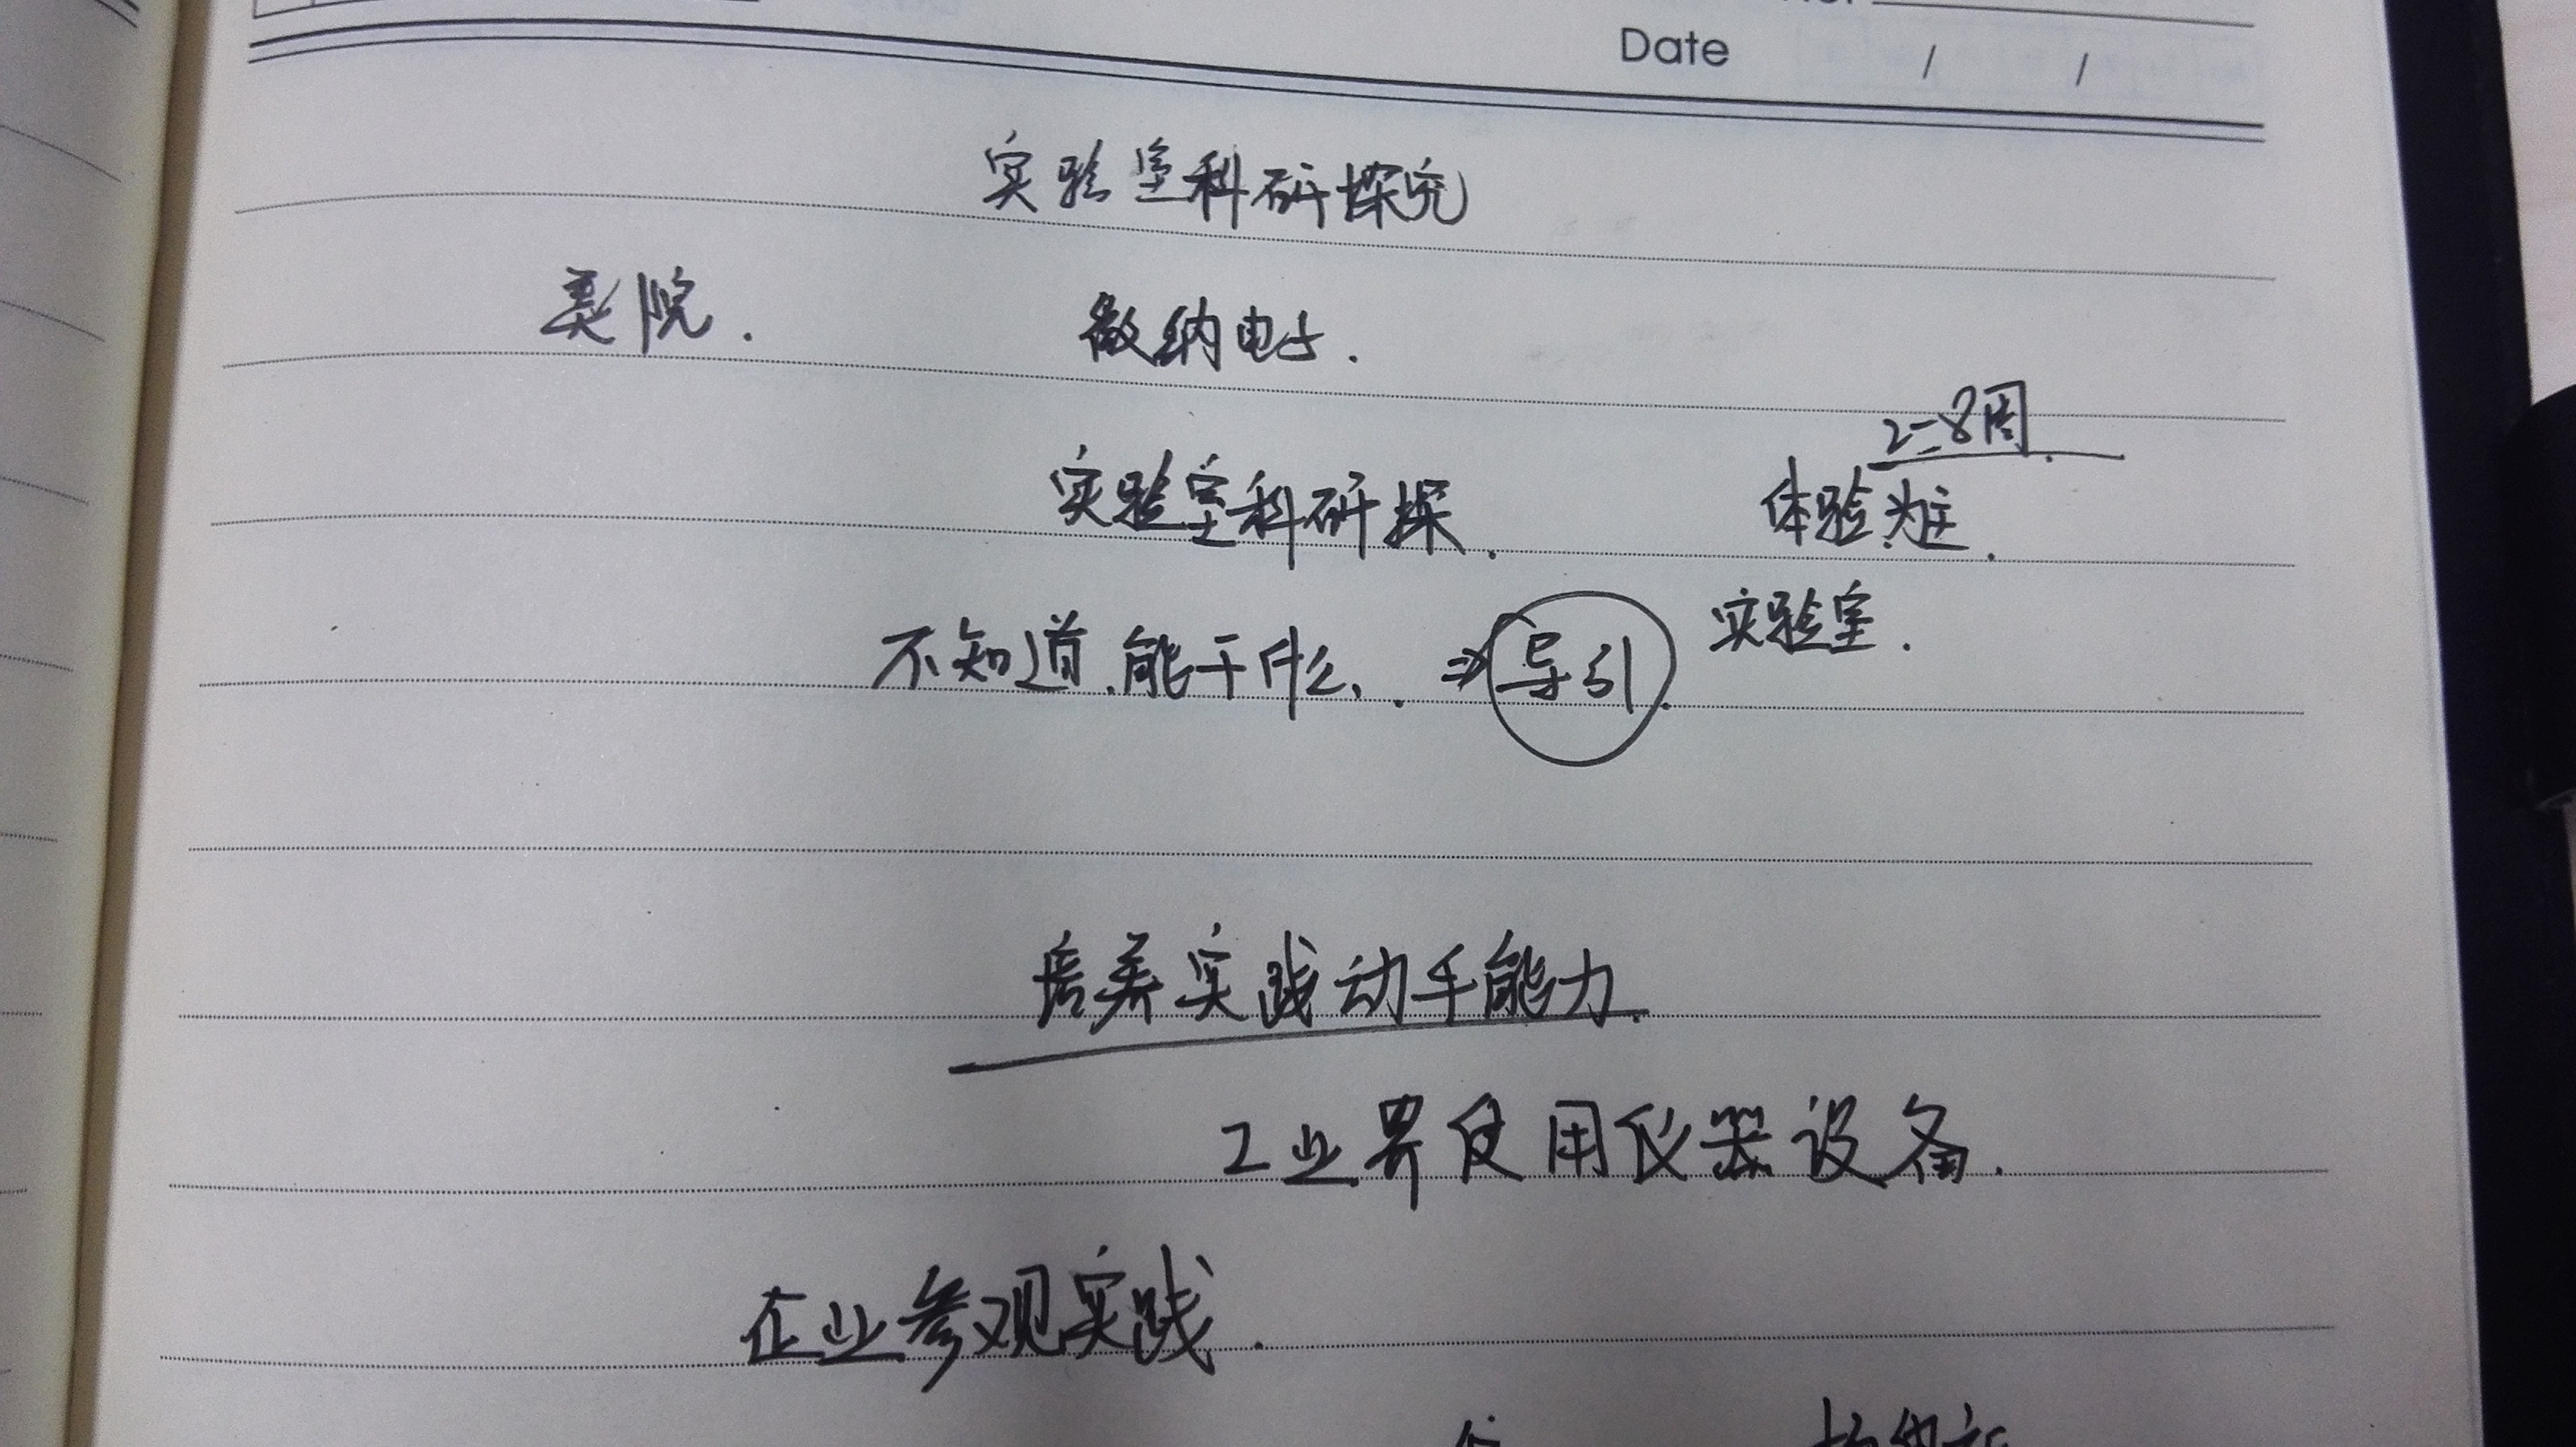 Date / /
实验室科研探究
美院. 微纳电子.
2-8周.
实验室科研探. 体验为主.
实验室.
不知道.能干什么. ⇒导引.
培养实践动手能力.
工业界使用仪器设备.
企业参观实践.